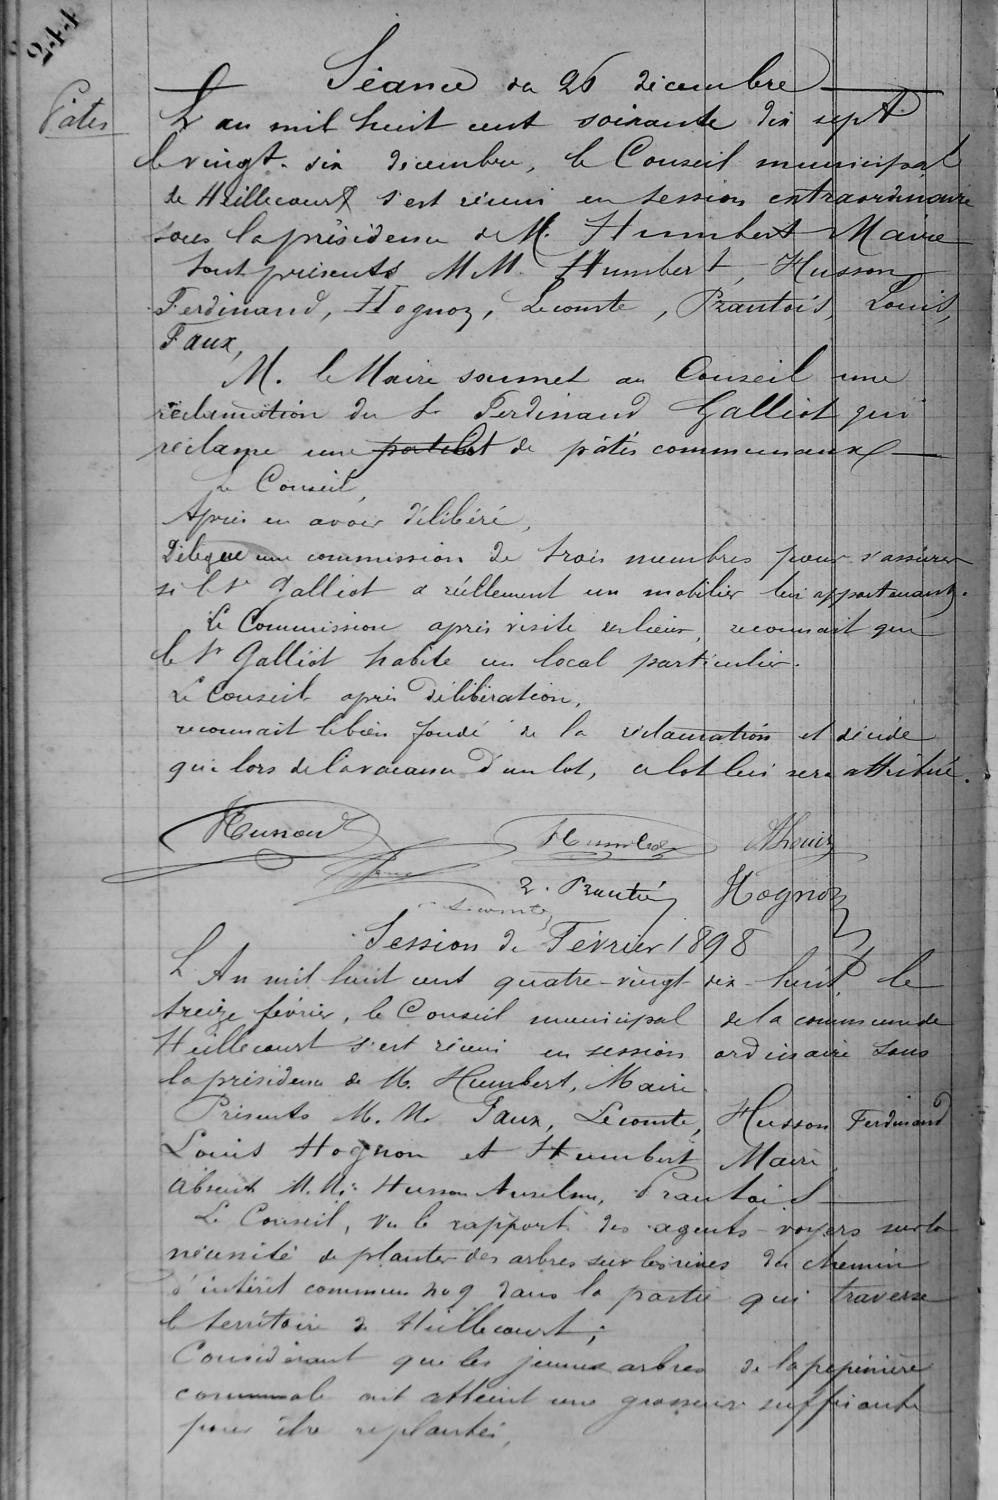 244
Séance du 26 décembre
Pâtes
L'an mil huit cent soixante dix sept
le vingt-six décembre, le Conseil municipal
de Heillecourt s'est réuni en session extraordinaire
sous la présidence de M. Humbert Maire
Sont présents M.M. Humbert, Husson
Ferdinand, Hognon, Lecomte, Prantois, Louis,
Faux,
M. le Maire soumet au Conseil une
réclamation du Sr Ferdinand Galliot qui
réclame une de pâtis communaux
Le Conseil,
Après en avoir délibéré,
Délègue une commission de trois membres pour s'assurer
si le Sr Galliot a réellement un mobilier lui appartenant.
La Commission, après visite des lieux, reconnait que
le Sr Galliot habite un local particulier.
Le Conseil après délibération,
reconnait le bien fondé de la réclamation et décide
que lors de la vacance d'un lot, ce lot lui sera attribué.
Humbert
Prantois Hognon
Lecomte
Session de Février 1898
L'An mil huit cent quatre-vingt dix-huit le
treize février, le Conseil municipal de la commune de
Heillecourt s'est réuni en session ordinaire sous
la présidence de M. Humbert, Maire.
Présents M.M. Faux, Lecomte, Husson Ferdinand
Louis Hognon et Humbert Maire,
Absents M.M. Husson Anselme, Prantois
Le Conseil, vu le rapport des agents-voyers sur la
nécessité de planter des arbres sur les rives du chemin
d'intérêt commun no 9 dans la partie qui traverse
le territoire de Heillecourt;
Considérant que les jeunes arbres de la pépinière
communale ont atteint une grosseur suffisante
pour être replantés,